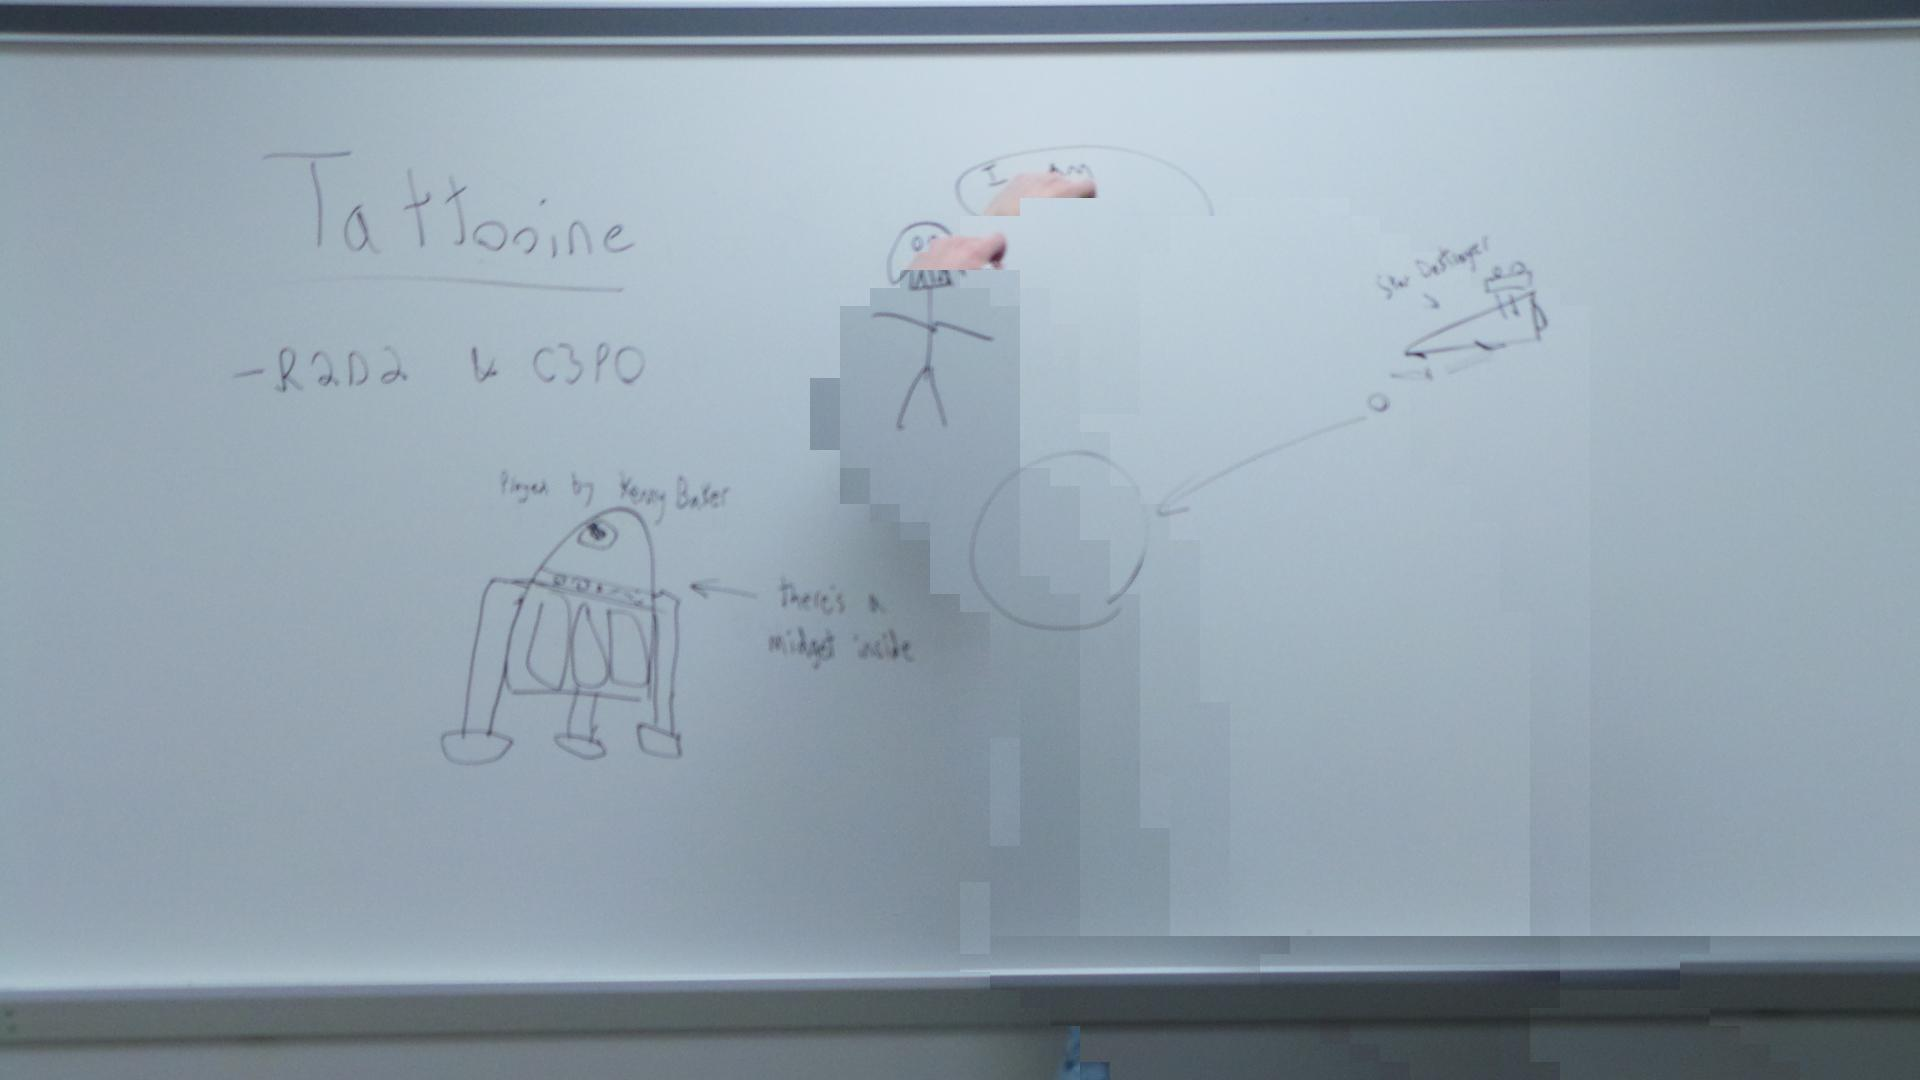 Tattooine
- R2D2 & C3PO
Played by Kenny Baker
there's a
midget inside
I Am
Star Destroyer